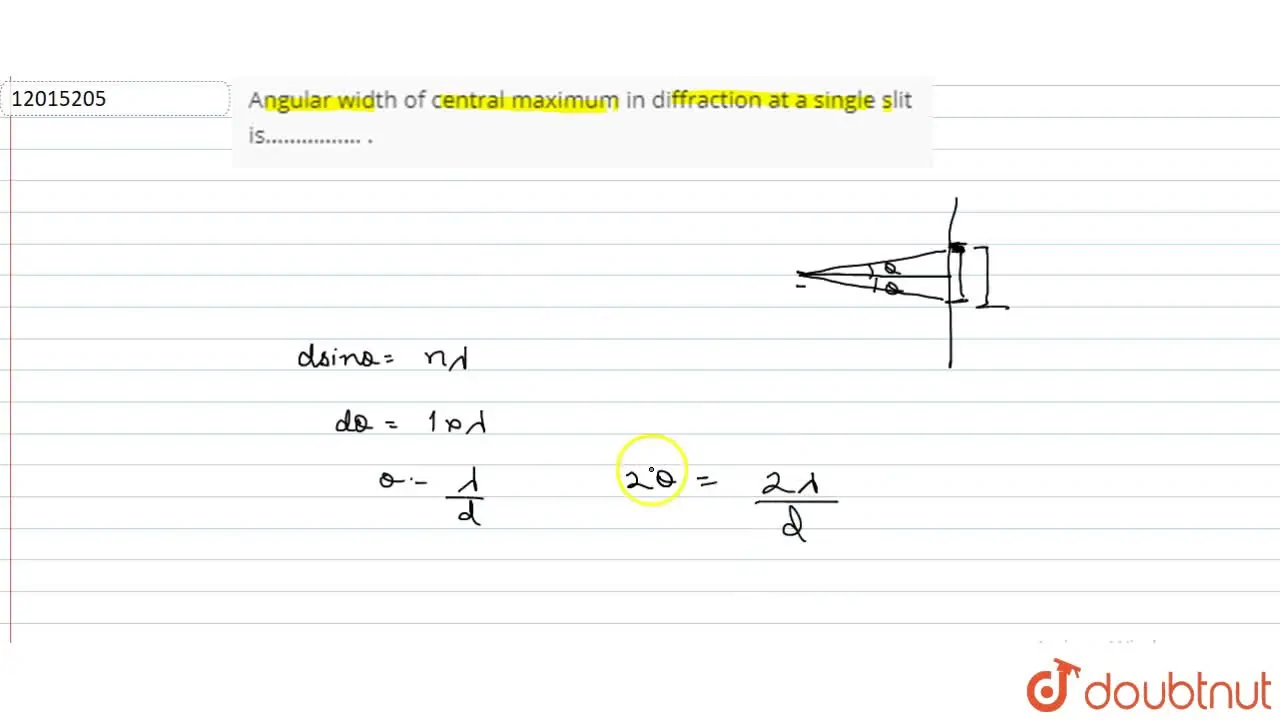 12015205
Angular width of central maximum in diffraction at a single slit
is................ .
θ
θ
dsinθ = nλ
dθ = 1×λ
θ = λ/d
2θ = 2λ/d
doubtnut